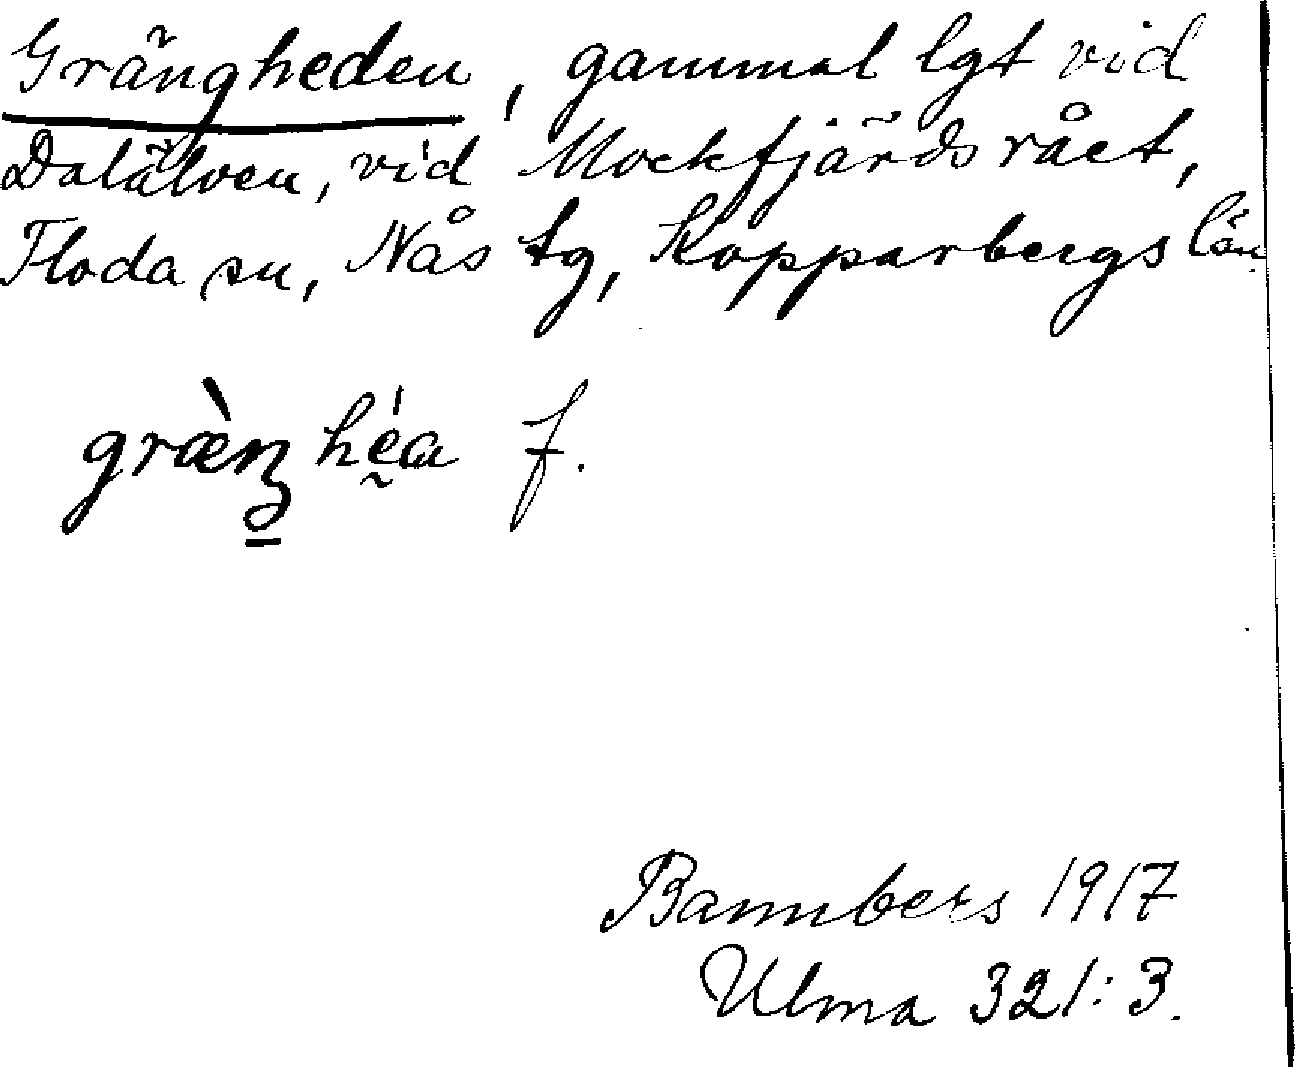 Grängheden, gammal lgt vid
Dalälven, vid Mockfjärdsrået,
Floda sn, Nås tg, Kopparbergs län
græ̀nʒ hḛ́a f.
Bannbers 1917
Ulma 321:3.